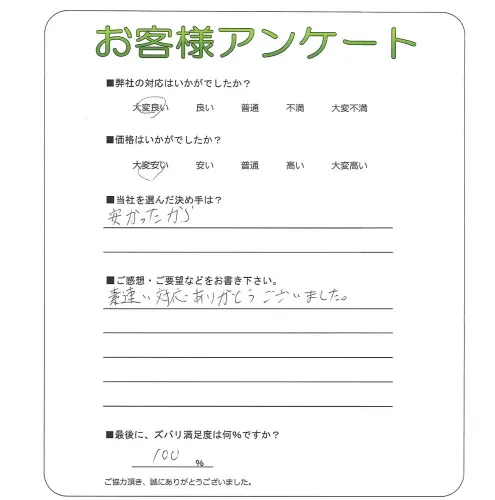 お客様アンケート
■弊社の対応はいかがでしたか？
大変良い 良い 普通 不満 大変不満
■価格はいかがでしたか？
大変安い 安い 普通 高い 大変高い
■当社を選んだ決め手は？
安かったから
■ご感想・ご要望などをお書き下さい。
素速い対応ありがとうございました。
■最後に、ズバリ満足度は何%ですか？
100 %
ご協力頂き、誠にありがとうございました。